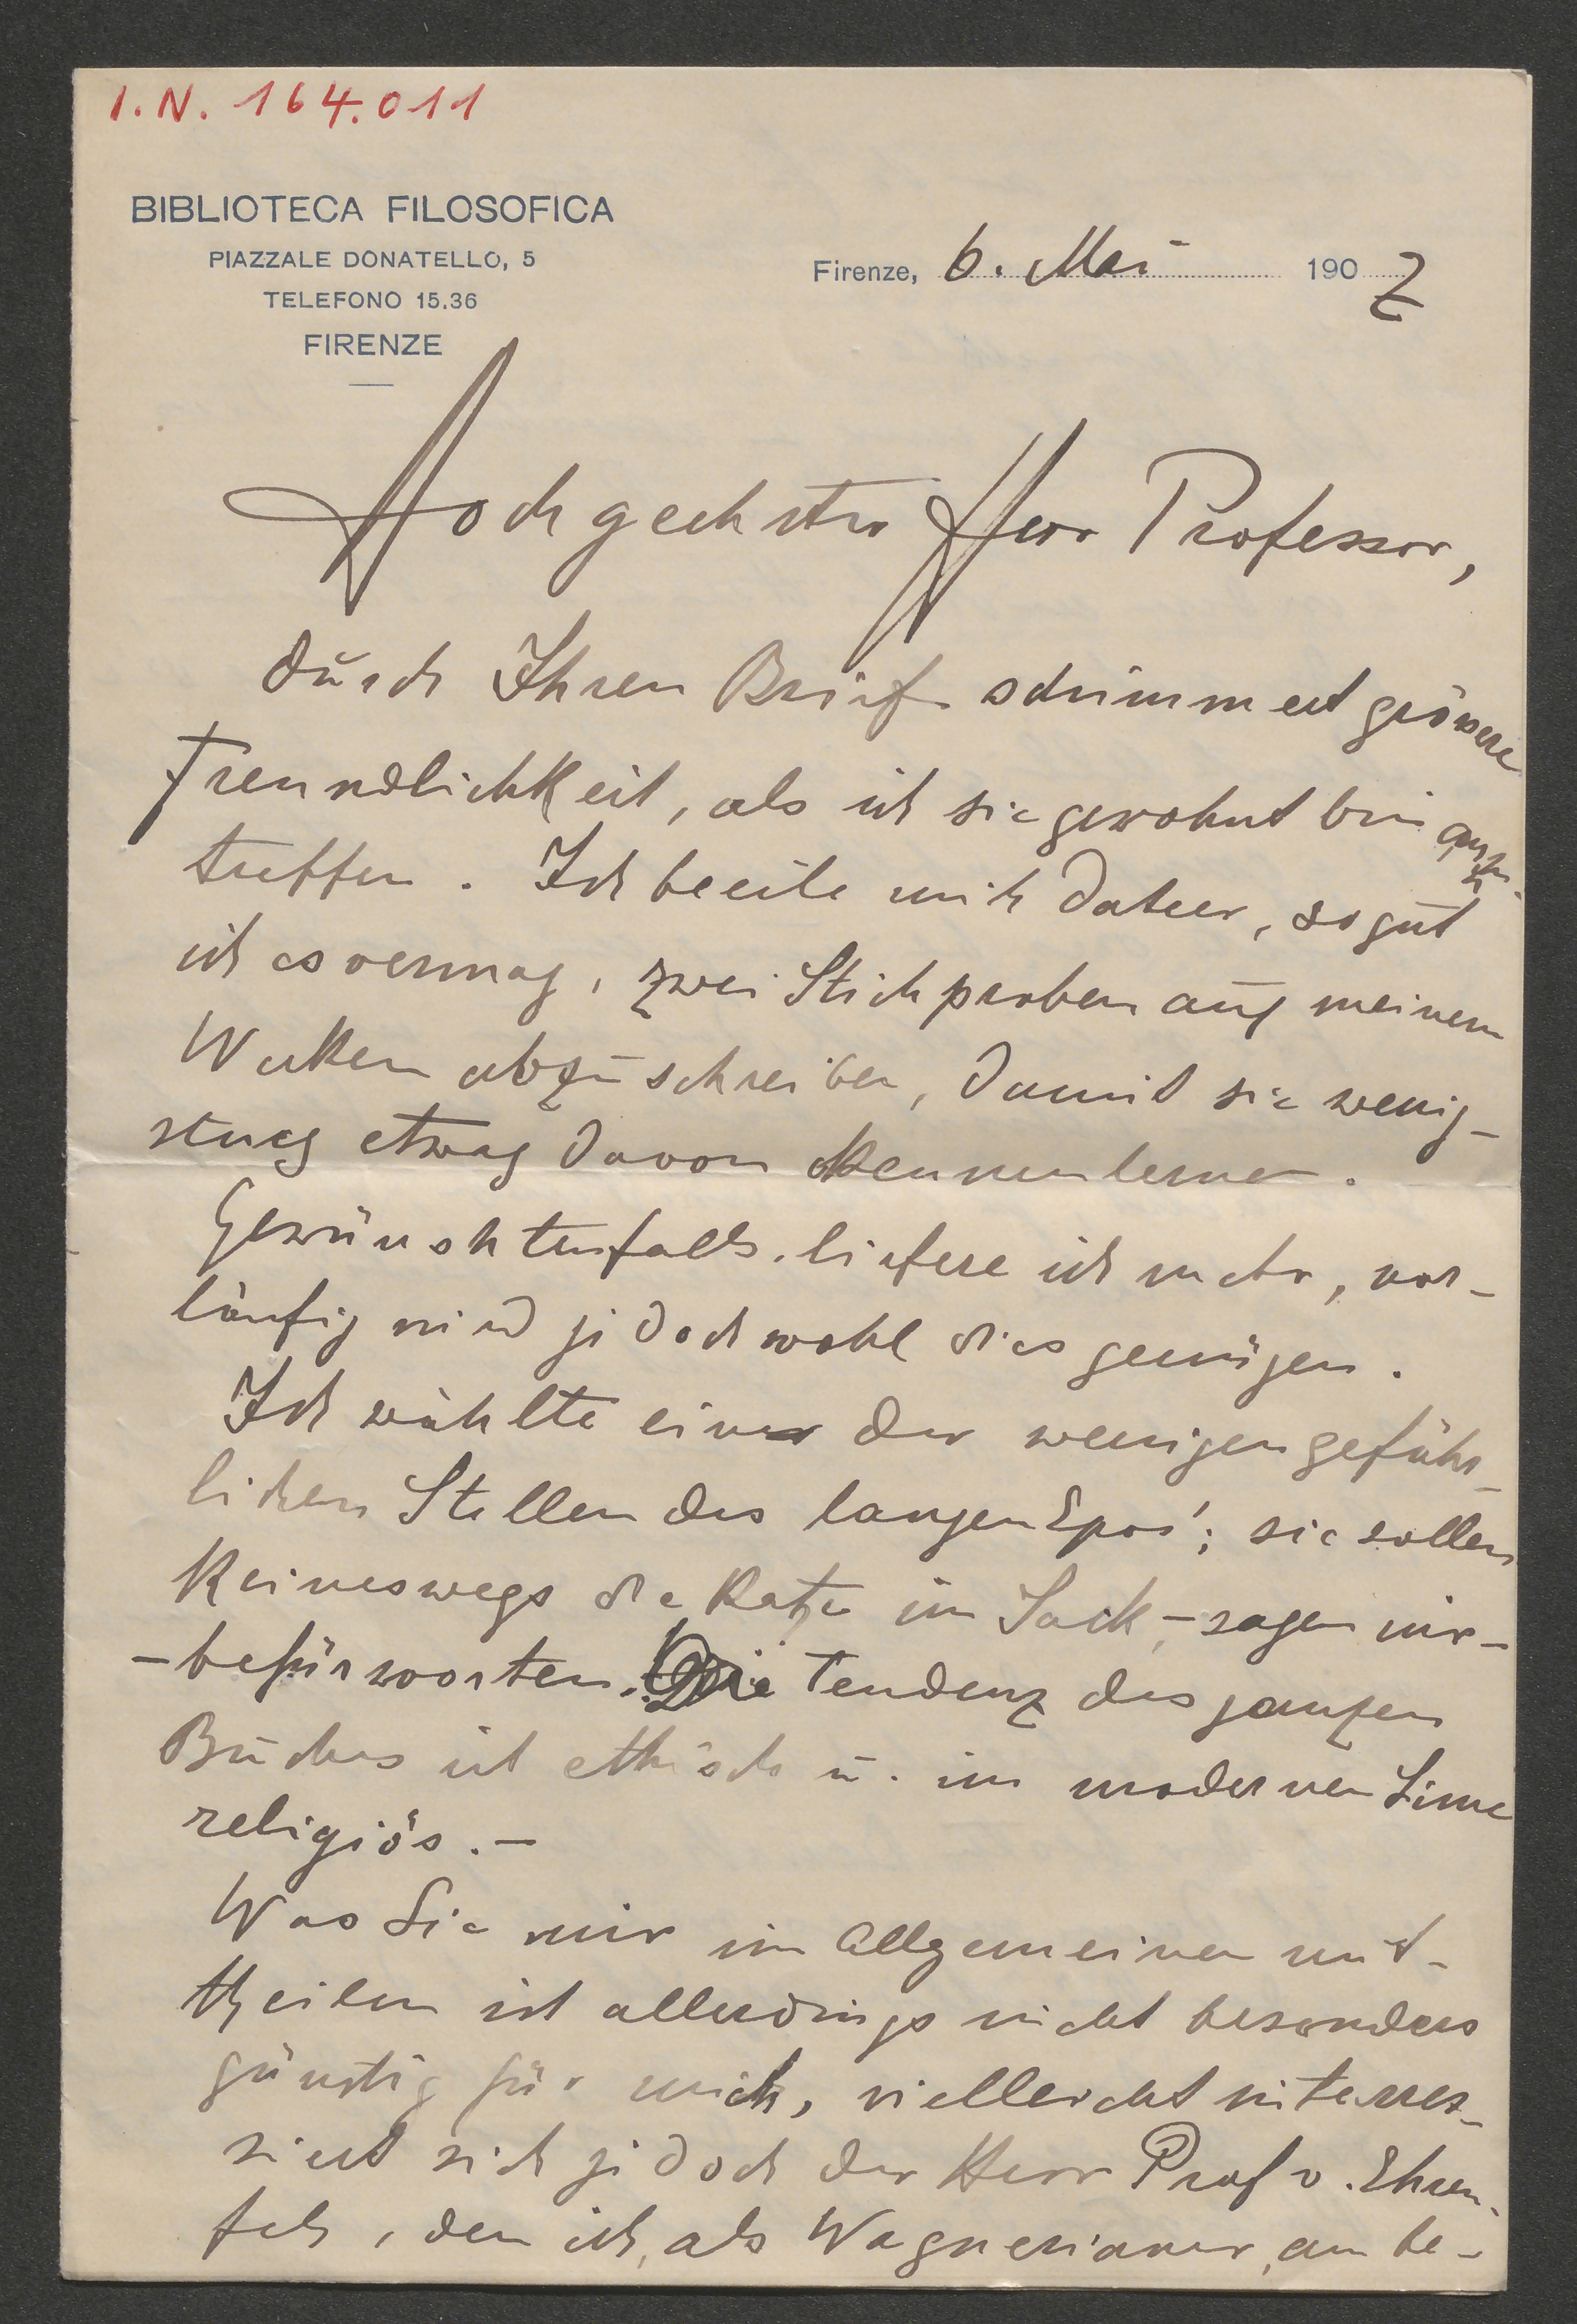 I.N. 164.011
BIBLIOTECA FILOSOFICA
PIAZZALE DONATELLO, 5
TELEFONO 15.36
FIRENZE
Firenze, 6. Mai 1907
Hochgeehrter Herr Professor,
durch Ihren Brief schimmert grössere
Freundlichkeit, als ich sie gewohnt bin anzu-
treffen. Ich beeile mich daher, so gut
ich es vermag, zwei Stichproben aus meinem
Werken abzuschreiben, damit sie wenig-
stens etwas davon kennenlernen.
Gewünschtenfalls liefere ich mehr, vor-
läufig wird jedoch wohl dies genügen.
Ich wählte einer der wenigen gefähr-
lichen Stellen des langen Epos'; sie sollen
keineswegs die Katze im Sack, – sagen wir –
– befürworten. Die Tendenz des ganzen
Buches ist ethisch u. im modernen Sinne
religiös. –
Was Sie mir im Allgemeinen mit-
theilen ist allerdings nicht besonders
günstig für mich, vielleicht interes-
siert sich jedoch der Herr Prof v. Ehren-
fels, den ich, als Wagnerianer, am be-